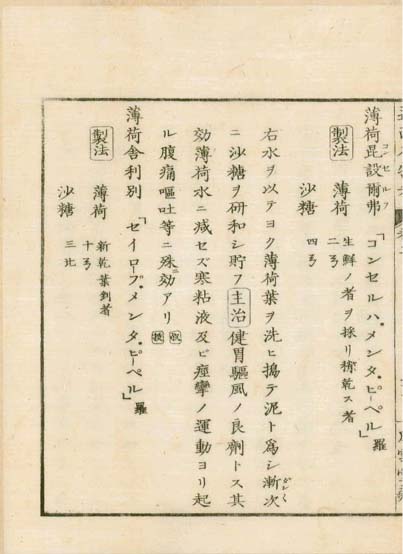 薄荷毘設爾弗「コンセルハ・メンタ・ピーペル」羅
コンセルフ
製法 薄荷 生鮮ノ者ヲ採リ 乾ス者 二ヲ
沙糖 四ヲ
右水ヲ以テヨク薄荷葉ヲ洗ヒ搗テ泥ト為シ漸次
ニ沙糖ヲ研和シ貯フ 主治 健胃驅風ノ良劑トス其
効薄荷水ニ減セズ寒粘液及ビ痙攣ノ運動ヨリ起
ル腹痛嘔吐等ニ殊効アリ
薄荷舎利別「セイロープ・メンタ・ピーペル」羅
製法 薄荷 新乾葉剉者 十ヲ
沙糖 三比